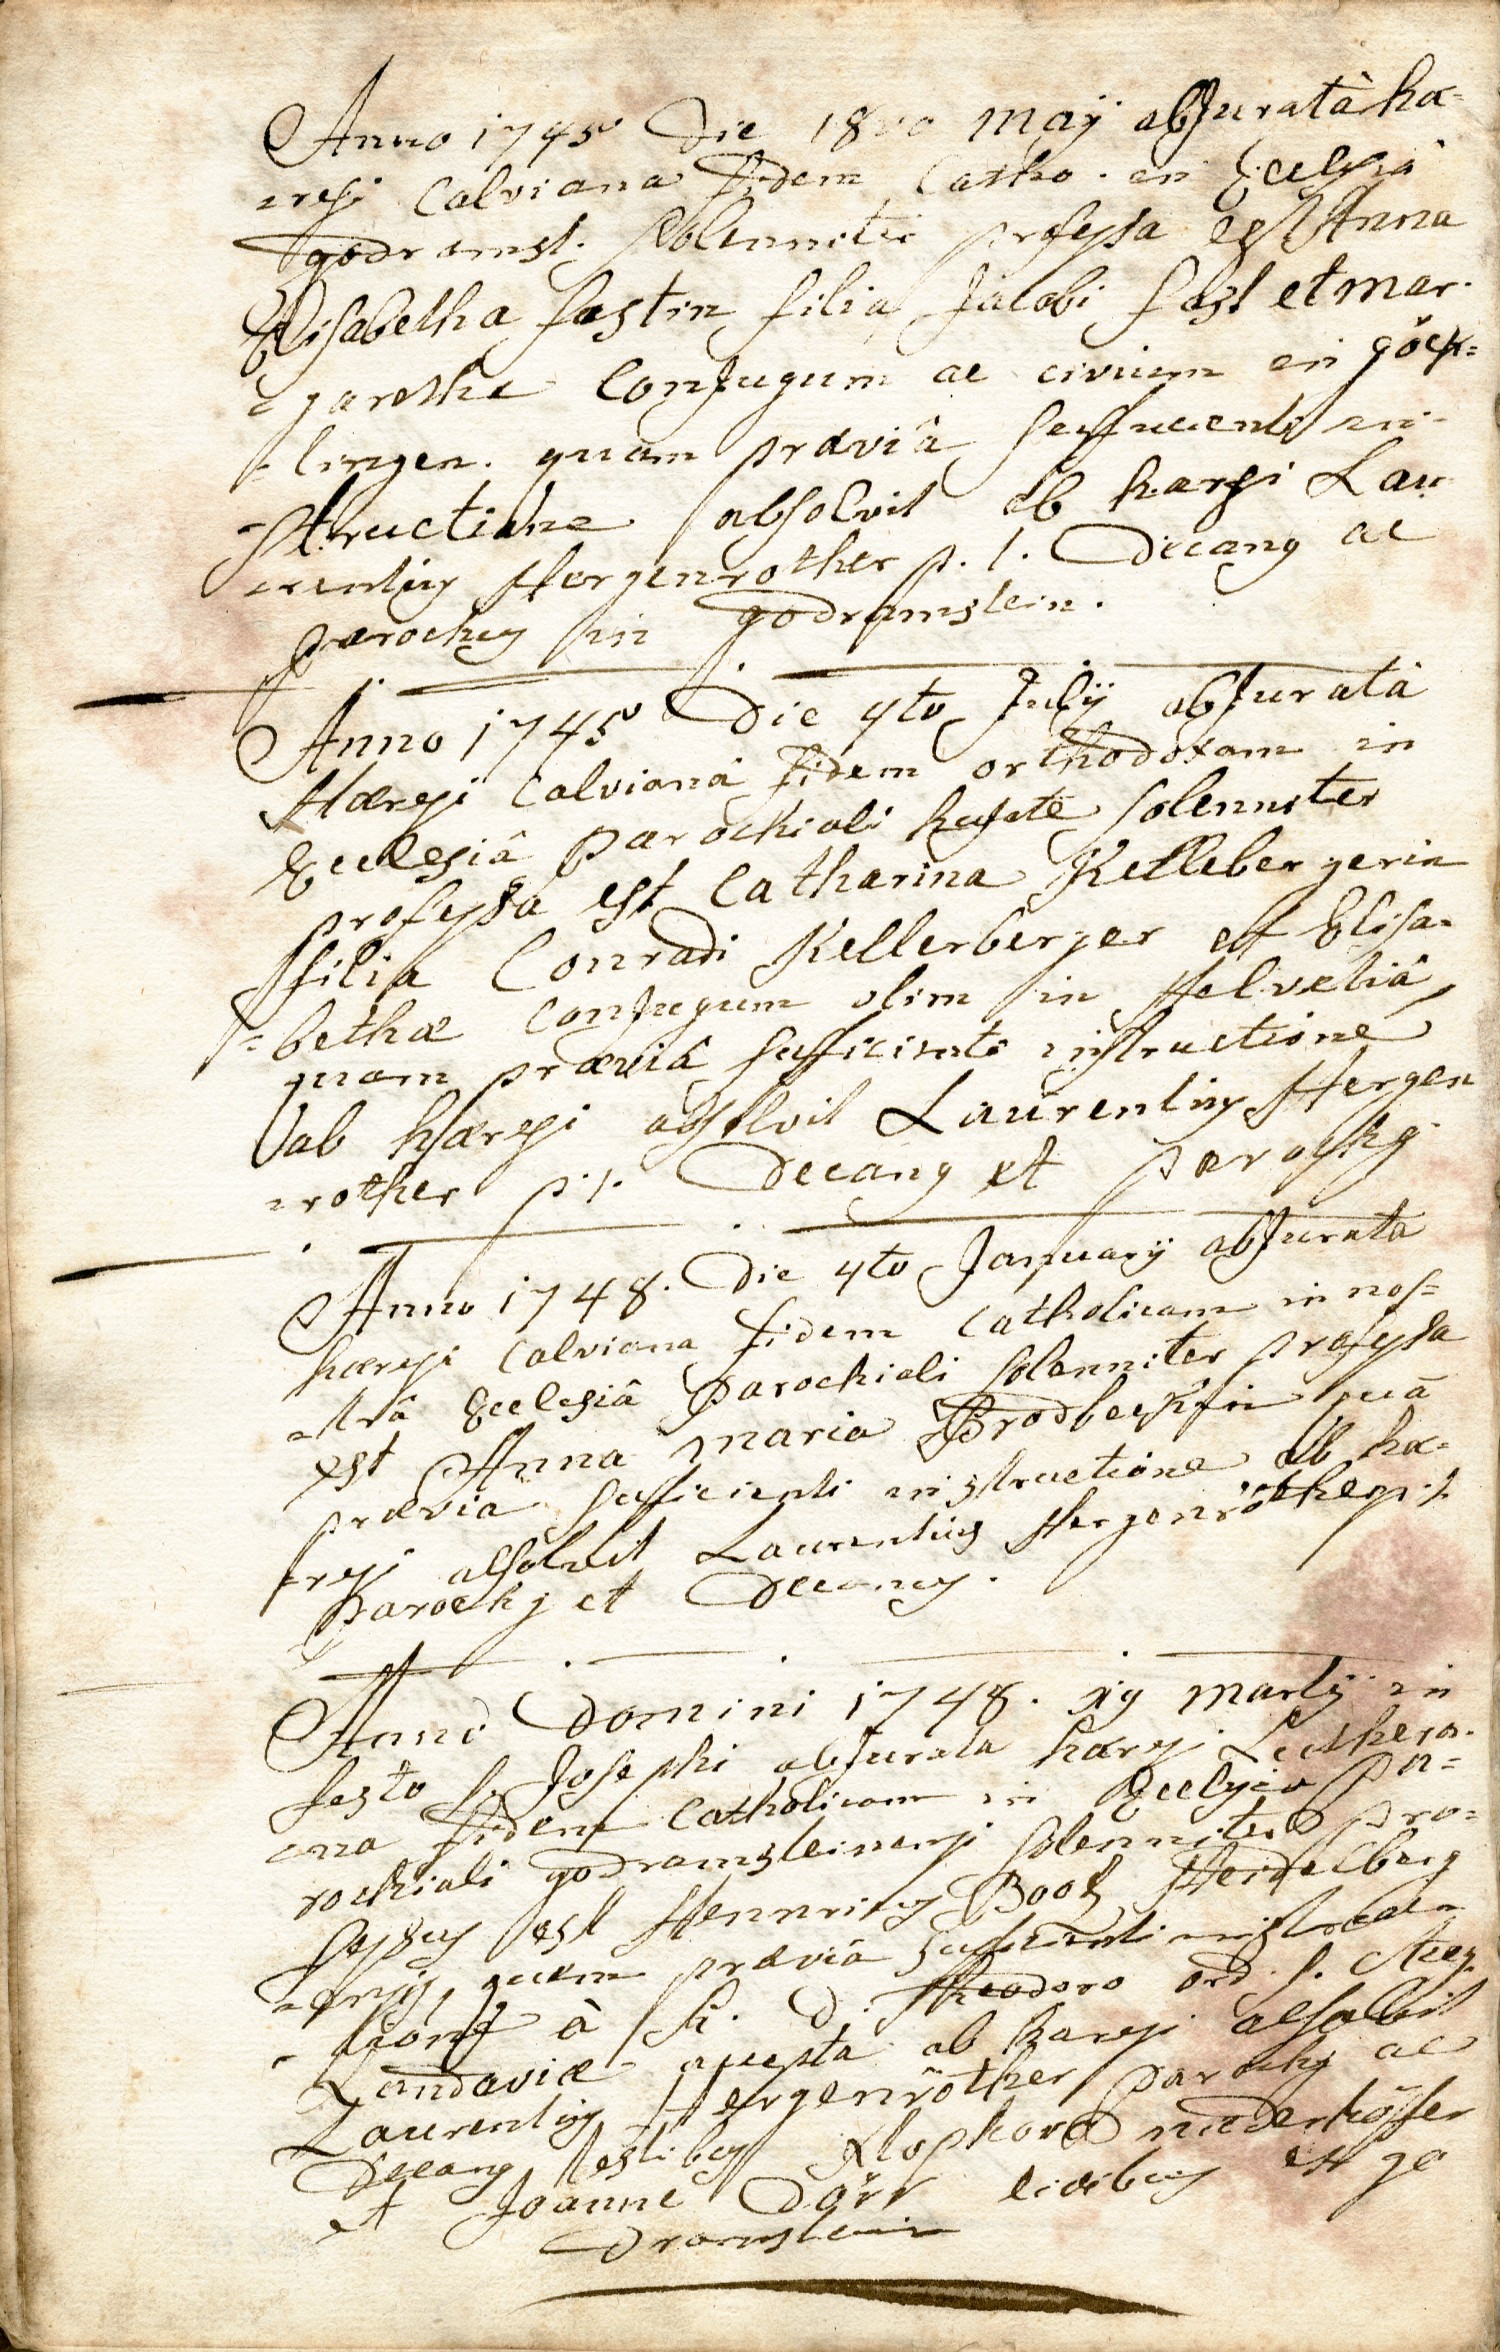 Anno 1745 Die 18vo may abjuratâ hæ=
=resi Calviana fidem Catho. in Ecclesia
godramst. solenniter professa est Anna
Elisabetha fastin filia Jacobi fast et mar=
=garethæ Conjugum ac civium in göck=
=lingen. quam præviâ sufficienti in=
=structione absolvit ab hæresi Lau=
=rentius Hergenrother p. t. Decanus ac
Parochus in godramstein.
Anno 1745 Die 4to Julÿ abjuratâ
Hæresi Calvianâ fidem orthodoxam in
Ecclesiâ Parochiali huiate solenniter
professa est Catharina Kelleber gerin
filia Conradi Kellerberger et Elisa=
=bethæ Conjugum olim in Helvetiâ,
quam præviâ sufficienti instructione
ab hæresi absolvit Laurentius Hergen
=rother p. t. Decanus et Parochus
Anno 1748. Die 4to Januarÿ abjurata
hæresi Calviana fidem Catholicam in nos=
=trâ Ecclesiâ Parochiali solenniter professa
est Anna maria Brodbeckin quā
prævia sufficienti instructione ab hæ=
=resi absolvit Laurentius Hergenröther p. t.
Parochus et Decanus.
Anno Domini 1748. 19 martÿ in
festo S. Josephi abjurata hæresi Luthera=
=na fidem Catholicam in Ecclesia pa=
rochiali godramsteinensi solenniter pro=
fessus est Hennricus Boos Heidelberg
=ensis, quem præviâ sufficienti instruc
=tione à R. D. Theodoro ord. S. Aug.
Landaviæ accepta ab hæresi absolvit
Laurentius Hergenröther Parochus ac
Decanus testibus niederhöffer
et Joanne Dörr civibus in go
dramstein